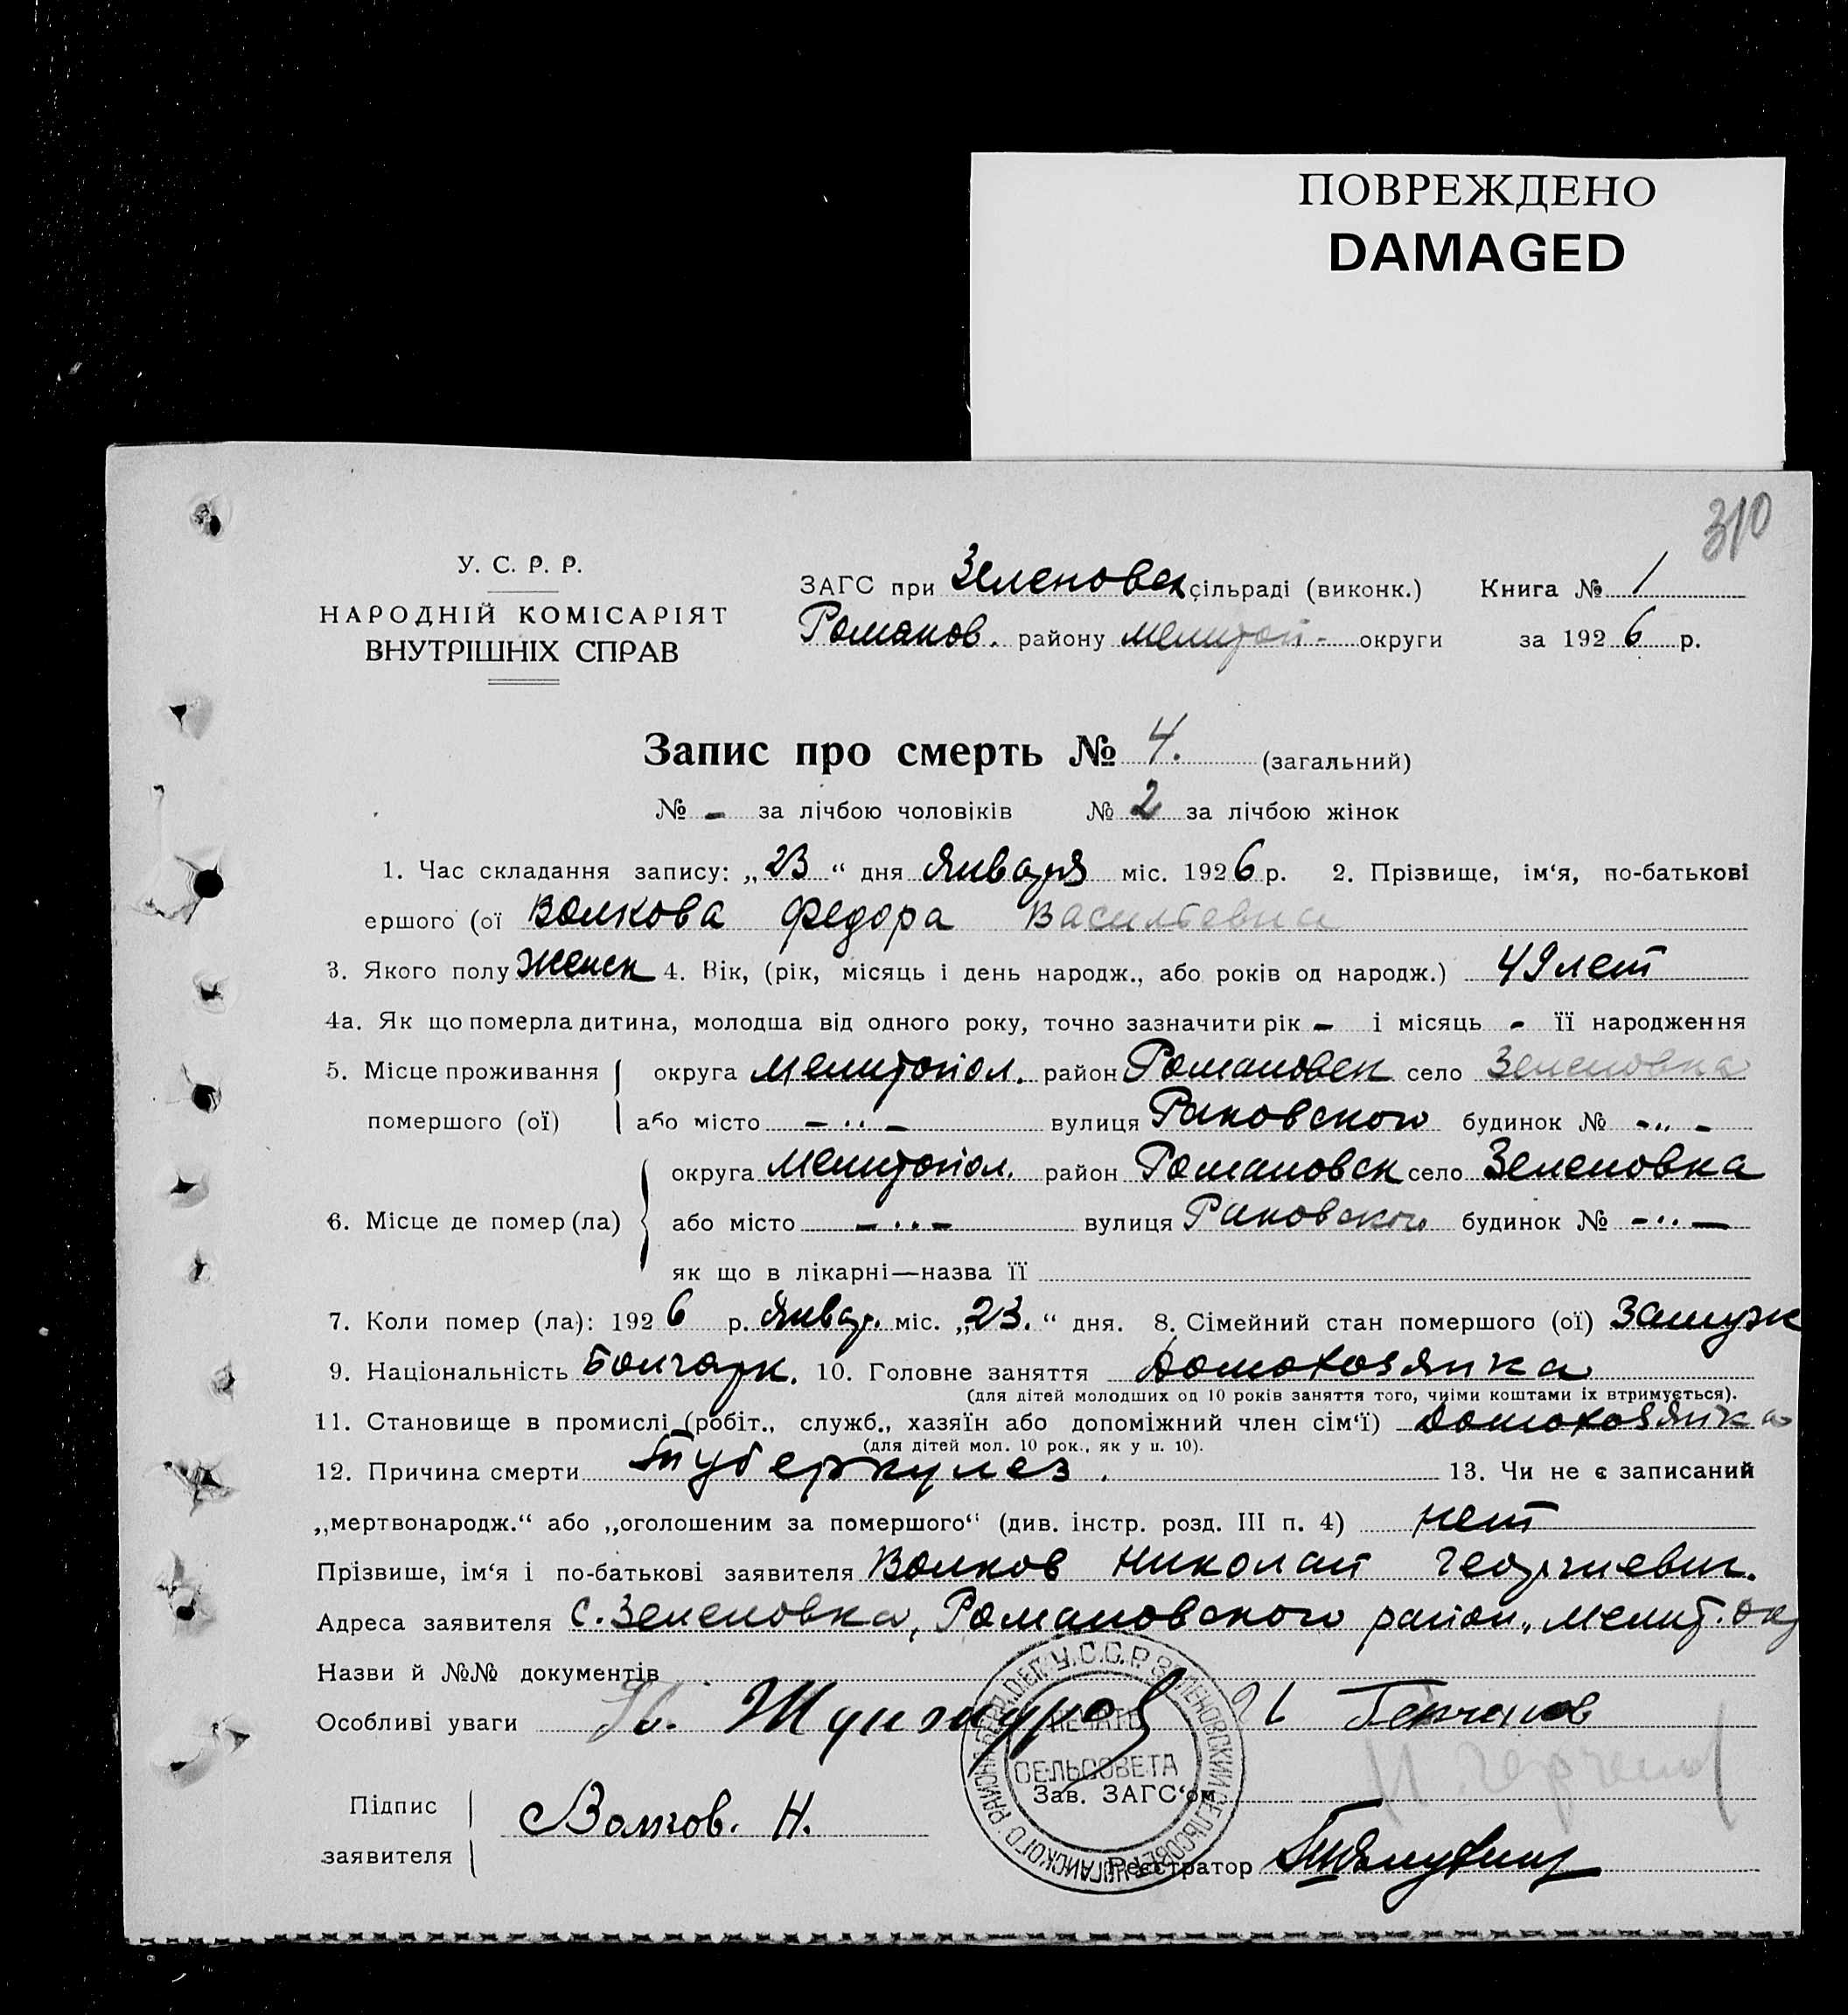 ПОВРЕЖДЕНО
DAMAGED
310
У. С. Р. Р.
НАРОДНІЙ КОМІСАРІЯТ
ВНУТРІШНІХ СПРАВ
ЗАГС при Зеленовск сільраді (виконк.) Книга № 1
Романов. району Мелитоп- округи за 1926 р.
Запис про смерть № 4. (загальний)
№ - за лічбою чоловіків № 2 за лічбою жінок
1. Час складання запису: „23“ дня Января міс. 1926 р. 2. Прізвище, ім‘я, по-батькові
ершого (ої Волкова Федора Васильевна
3. Якого полу Женск 4. Вік, (рік, місяць і день народж., або років од народж.) 49 лет
4а. Як що померла дитина, молодша від одного року, точно зазначити рік - і місяць - її народження
5. Місце проживання округа Мелитопол. район Романовск село Зеленовка
померлого (ої) або місто - „ - вулиця Раковского будинок № - „ -
округа Мелитопол. район Романовск село Зеленовка
6. Місце де помер (ла) або місто - „ - вулиця Раковского будинок № - „ -
як що в лікарні—назва її
7. Коли помер (ла): 1926 р. Январ. міс. „23.“ дня. 8. Сімейний стан помершого (ої) Замуж
9. Національність Болгарк. 10. Головне заняття Домохозяйка
(для дітей молодших од 10 років заняття того, чиїми коштами їх втримується).
11. Становище в промислі (робіт., служб., хазяїн або допоміжний член сім‘ї) Домохозяйка
(для дітей мол. 10 рок., як у п. 10).
12. Причина смерти Туберкулез. 13. Чи не є записаний
„мертвонародж.“ або „оголошеним за помершого“ (див. інстр. розд. III п. 4) нет
Прізвише, ім‘я і по-батькові заявителя Волков Николай Георгиевич.
Адреса заявителя с. Зеленовка, Романовского район., Мелит. окр
Назви й №№ документів
Особливі уваги
ПЕЧАТЬ
СЕЛЬСОВЕТА
Підпис Волков. Н. Зав. ЗАГС‘ом
заявителя Реєстратор